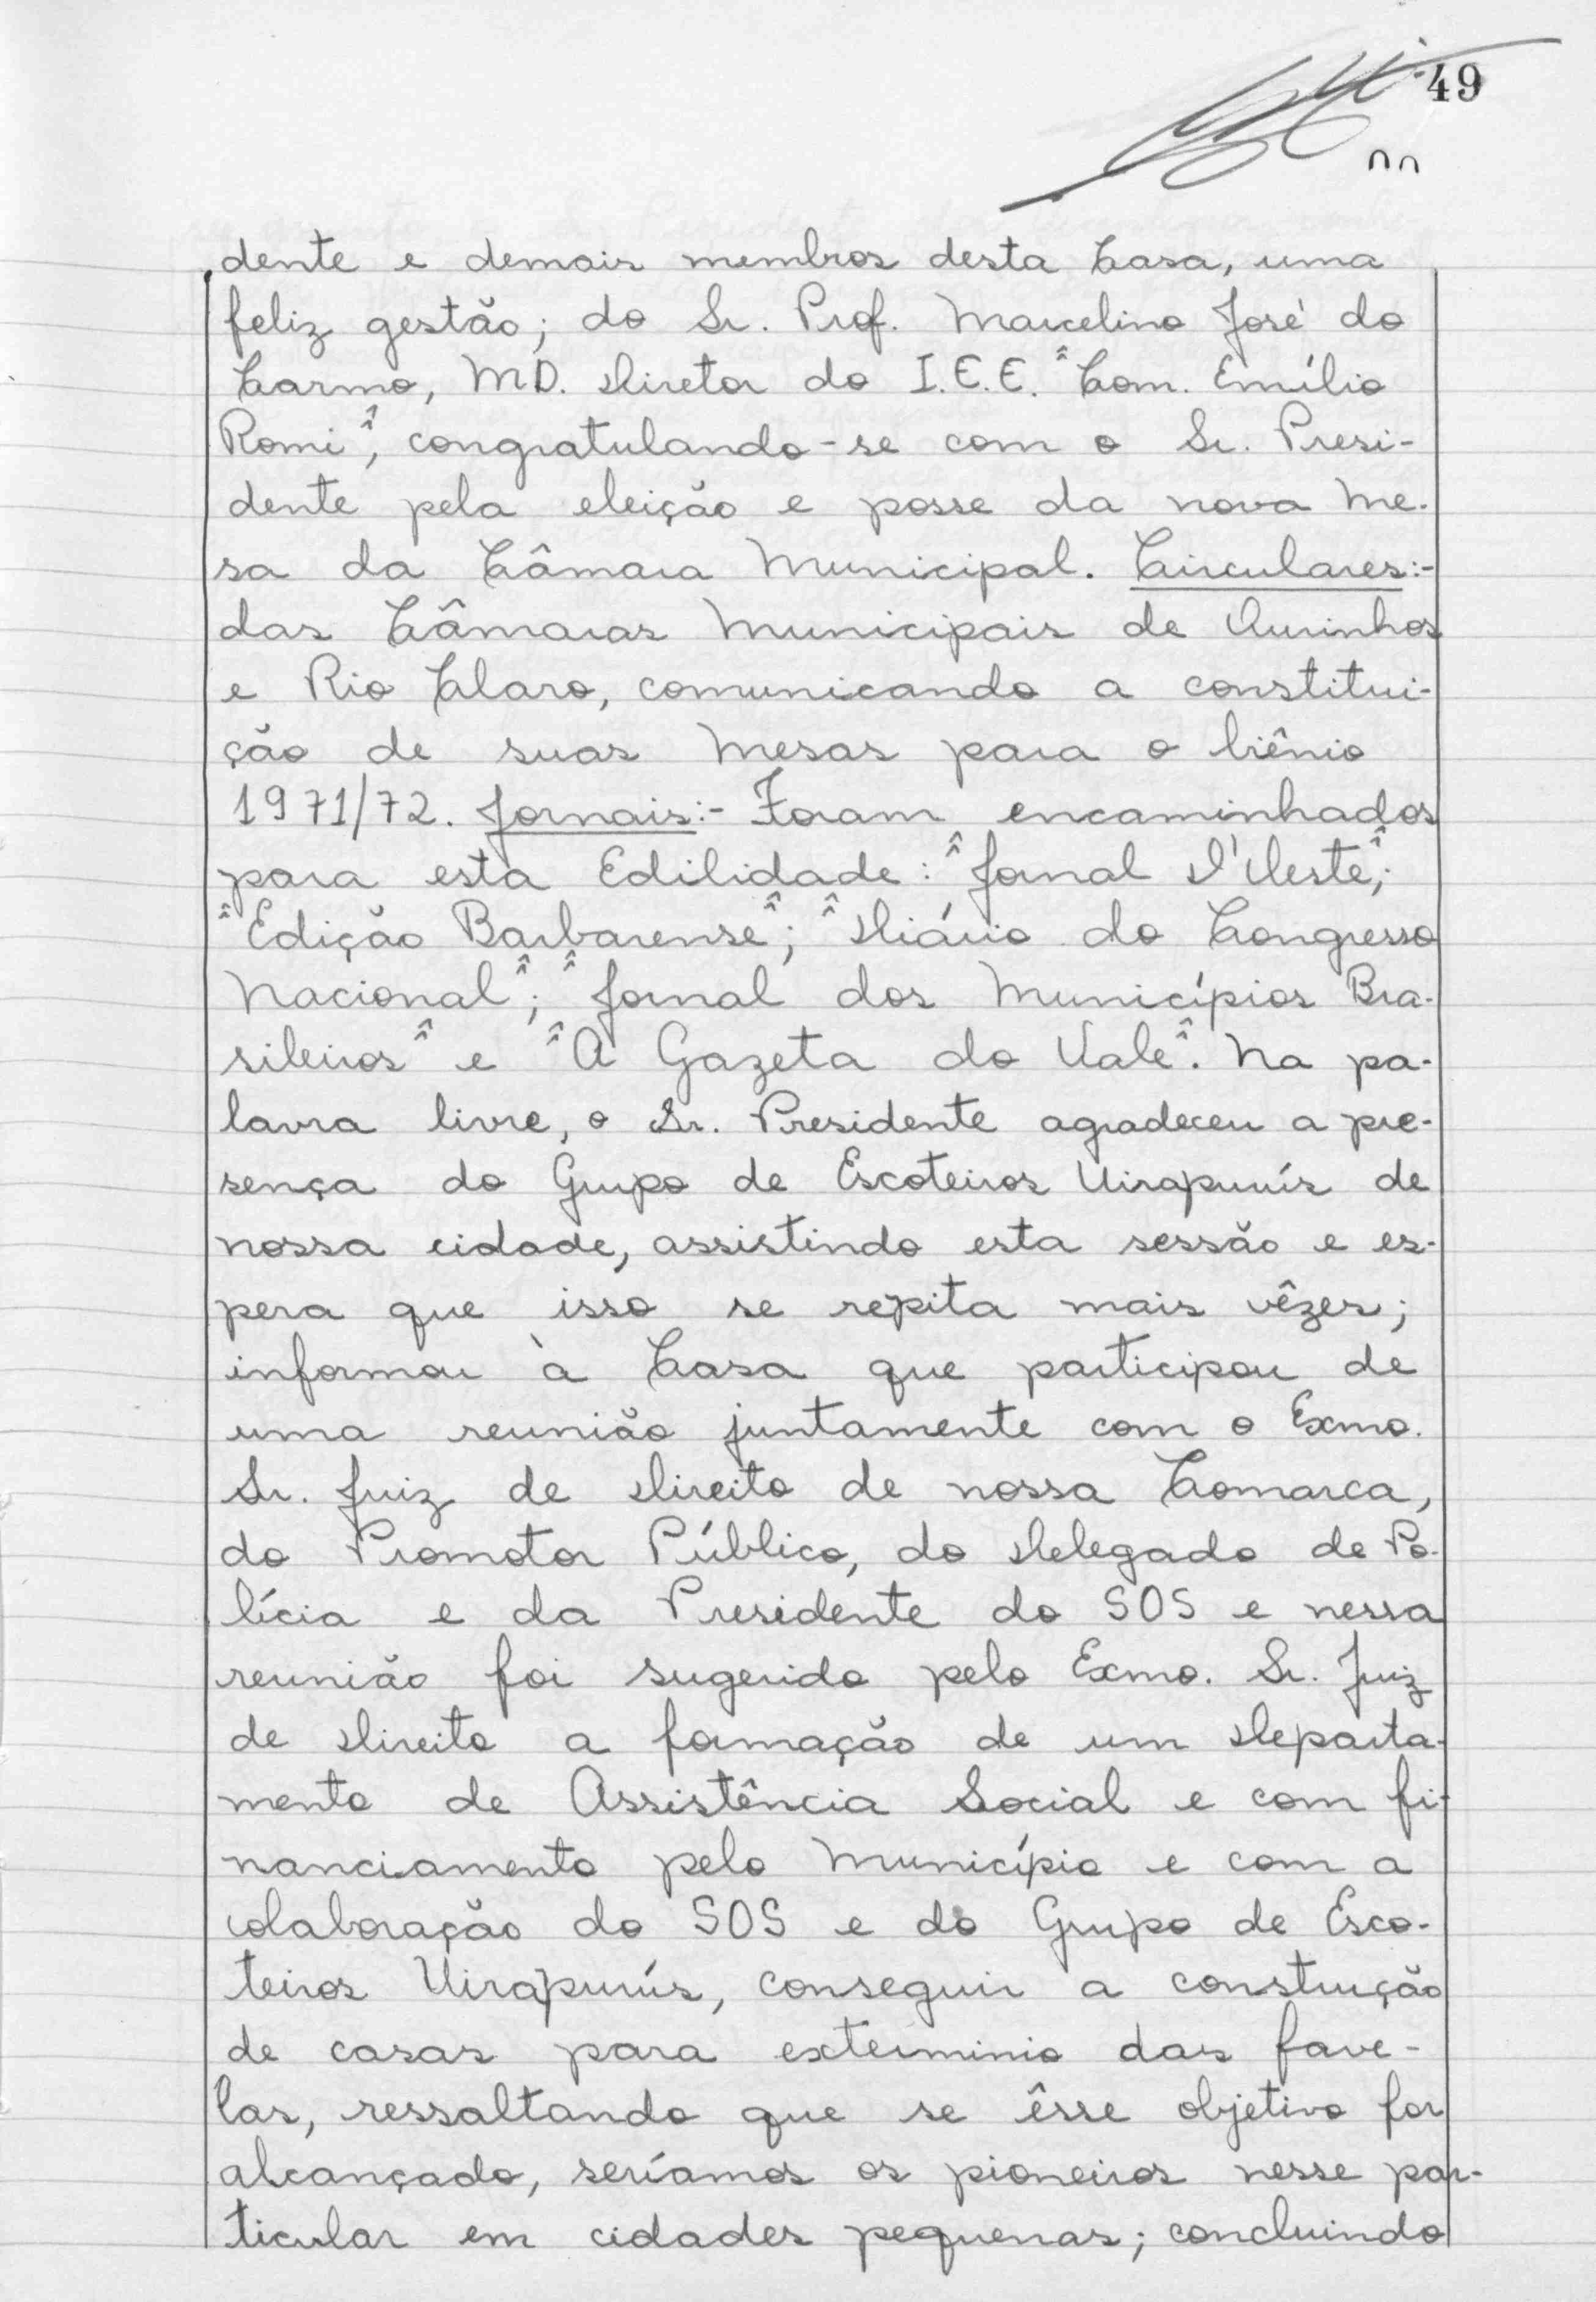 49
dente e demais membros desta Casa, uma
feliz gestão; do Sr. Prof. Marcelino José do
Carmo, MD. Diretor do I.E.E. "Com. Emílio
Romi", congratulando-se com o Sr. Presi-
dente pela eleição e posse da nova Me-
sa da Câmara Municipal. Circulares:-
das Câmaras Municipais de Ourinhos
e Rio Claro, comunicando a constitui-
ção de suas Mesas para o biênio
1971/72. Jornais:- Foram encaminhados
para esta Edilidade: "Jornal D'Oeste";
"Edição Barbarense"; "Diário do Congresso
Nacional"; "Jornal dos Municípios Bra-
sileiros" e "A Gazeta do Vale". Na pa-
lavra livre, o Sr. Presidente agradeceu a pre-
sença do Grupo de Escoteiros Uirapurús de
nossa cidade, assistindo esta sessão e es-
pera que isso se repita mais vêzes;
informou à Casa que participou de
uma reunião juntamente com o Exmo.
Sr. Juiz de Direito de nossa Comarca,
do Promotor Público, do Delegado de Po-
lícia e da Presidente do SOS e nessa
reunião foi sugerido pelo Exmo. Sr. Juiz
de Direito a formação de um Departa-
mento de Assistência Social e com fi-
nanciamento pelo Município e com a
colaboração do SOS e do Grupo de Esco-
teiros Uirapurús, conseguir a construção
de casas para exterminio das fave-
las, ressaltando que se êsse objetivo for
alcançado, seríamos os pioneiros nesse par-
ticular em cidades pequenas; concluindo